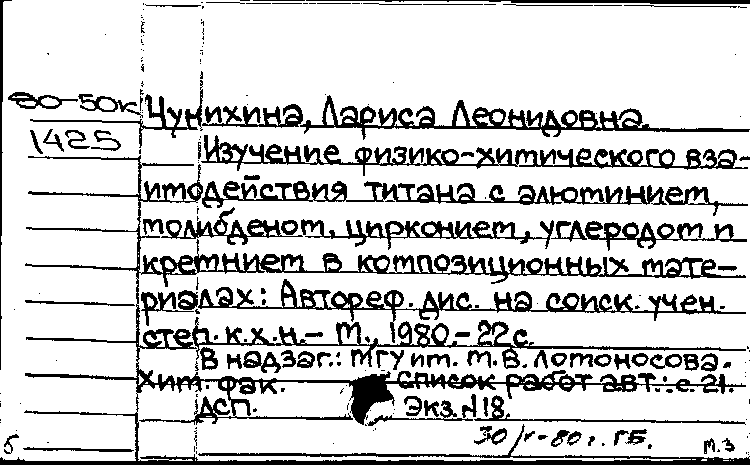 80-50к
1425
Чунихина, Лариса Леонидовна.
Изучение физико-химического вза-
имодействия титана с алюминием,
молибденом, цирконием, углеродом и
кремнием в композиционных мате-
риалах: Автореф. дис. на соиск. учен.
степ. к.х.н.- М., 1980.- 22с.
В надзаг.: МГУ им. М.В. Ломоносова.
Хим. фак. Список работ авт.: с. 21.
ДСП. Экз. №18.
30/V-80г. ГБ.
б
М.З